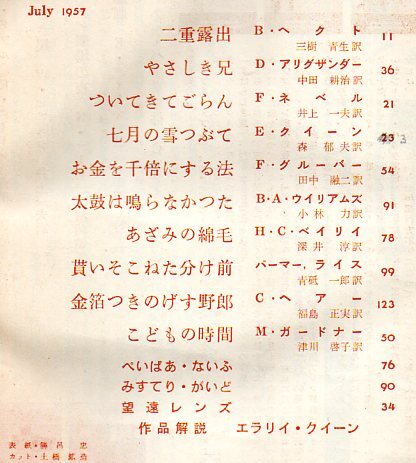 July 1957
二重露出 B・ヘクト 11
三樹青生訳
やさしき兄 D・アリグザンダー 36
中田耕治訳
ついてきてごらん F・ネベル 21
井上一夫訳
七月の雪つぶて E・クイーン 23
森郁夫訳
お金を千倍にする法 F・グルーバー 54
田中融二訳
太鼓は鳴らなかつた B・A・ウイリアムズ 91
小林力訳
あざみの綿毛 H・C・ベイリイ 78
深井淳訳
貰いそこねた分け前 パーマー,ライス 99
青砥一郎訳
金箔つきのげす野郎 C・ヘアー 123
福島正実訳
こどもの時間 M・ガードナー 50
津川啓子訳
ぺいぱあ・ないふ 76
みすてり・がいど 90
望遠レンズ 34
作品解説 エラリイ・クイーン
表紙・勝呂忠
カット・土橋